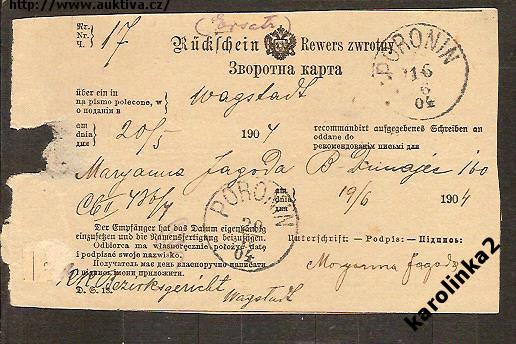 http://www.auktiva.cz/
(Ersatz)
Nr.
Nr.
Ч.
17
Rückschein Rewers zwrotny
Зворотна карта
PORONIN
16
6
04
über ein in
na pismo polecone, w
о поданїй в
Wagstadt
am
dnia
дня
20/5 1904
recommandirt aufgegebenes Schreiben an
oddane do
рекомендовані письмі для
Maryanna Jagoda
160
am
dnia
дня
19/6 1904
PORONIN
20
04
Der Empfänger hat das Datum eigenhändig
einzusetzen und die Namensfertigung beizufügen.
Odbiorca ma własnoręcznie położyć datę
i podpisać swoje nazwisko.
Получатель має день власноручно написати
і підпись імени приложити.
Unterschrift: — Podpis: — Підпись:
Maryanna Jagoda
Bezirksgericht
Wagstadt
D. S. 15.
karolinka2